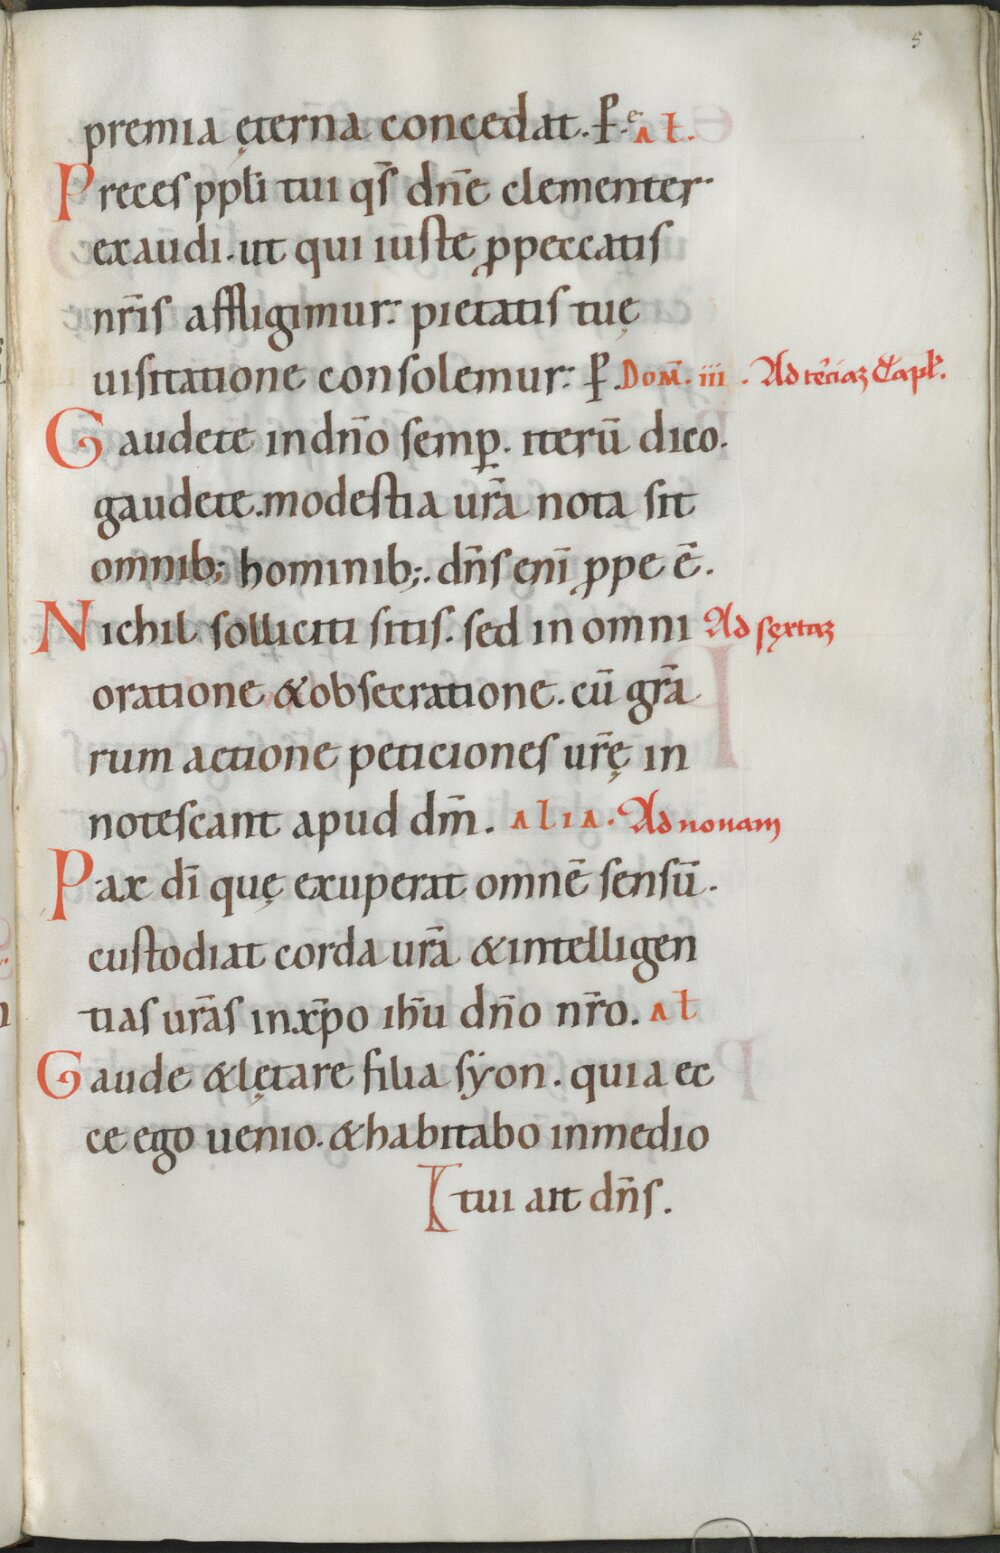 5
premia ęterna concedat. P̄.e aƚ.
Preces ppƚi tui qs̄ dn̄e clementer·
exaudi. ut qui iuste ꝓpeccatis
nr̄is affligimur: pietatis tuę
uisitatione consolemur: P̄. Dom̄. iii . Ad tēciaꝫ Capƚ.
Gaudete indn̄o semꝑ. iterū dico.
gaudete. modestia ur̄a nota sit
omnib; hominib;. dn̄s enī ꝓpe ē.
Nichil solliciti sitis. sed in omni Ad sęxtaꝫ
oratione &obsecratione. cū gr̄a
rum actione peticiones ur̄ę in
notescant apud dm̄. alia. Ad nonam
Pax dī quę exuperat omnē sensū.
custodiat corda ur̄a &intelligen
tias ur̄as inxp̄o ih̄u dn̄o nr̄o. aƚ
Gaude &lętare filia sẏon. quia ec
ce ego uenio. &habitabo inmedio
tui ait dn̄s.